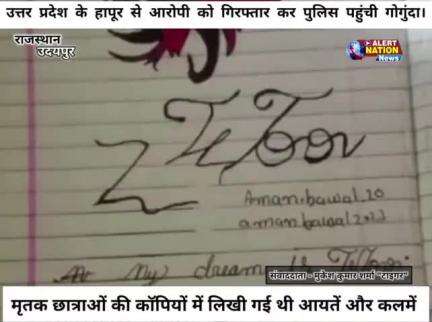 उत्तर प्रदेश के हापूर से आरोपी को गिरफ्तार कर पुलिस पहुंची गोगुंदा।
राजस्थान
उदयपुर
ALERT
NATION
News
Aman.bawal.20
My dream is
संवाददाता - मुकेश कुमार शर्मा "टाइगर"
मृतक छात्राओं की कॉपियों में लिखी गई थी आयतें और कलमें